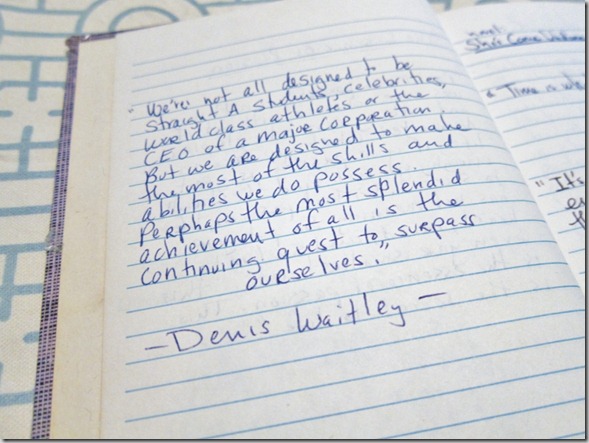 "We're not all designed to be
straight A students, celebrities,
world class athletes or the
CEO of a major corporation.
But we are designed to make
the most of the skills and
abilities we do possess.
Perphaps the most splendid
achievement of all is the
continuing quest to surpass
ourselves."
—Denis Waitley—
• Time is
"It's